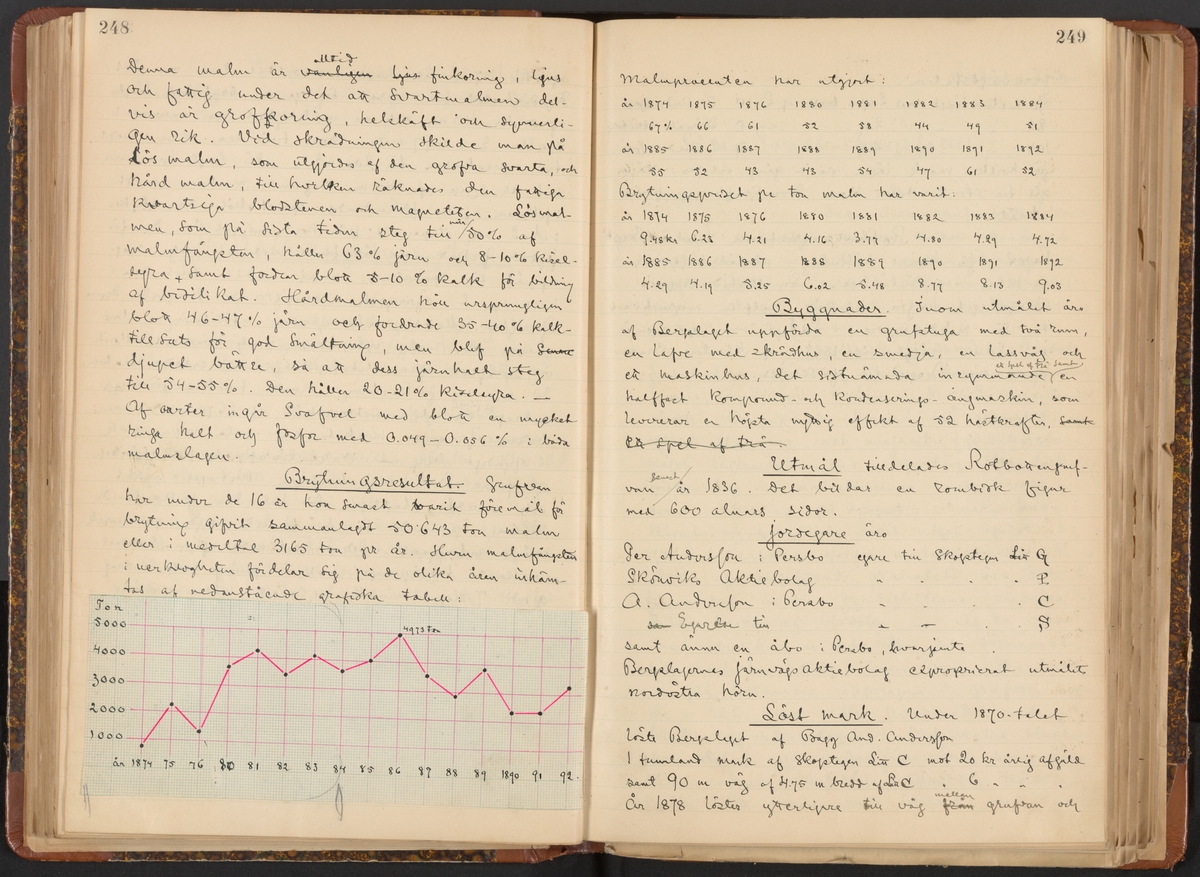 248
Denna malm är vanligen alltid ljus finkornig, ljus
och fattig under det att svartmalmen del-
vis är groffkornig, helskäft och synnerli-
gen rik. Vid skrädningen skilde man på
Lös malm, som utgjordes af den grofva svarta, och
hård malm, till hvilken räknades den fattiga
kvartsiga blodstenen och magnetiten. Lösmal-
men, som på sista tiden steg till 50 % af
malmfångsten, håller 63 % järn och 8-10 % kisel-
syra samt fordrar blott 5-10 % kalk för bildning
af bisilikat. Hårdmalmen höll ursprungligen
blott 46-47 % järn och fordrade 35-40 % kalk-
tillsats för god smältning, men blef på
djupet bättre, så att dess järnhalt steg
till 54-55 %. Den håller 20-21 % kiselsyra. —
Af arter ingår Svafvel med blott en mycket
ringa halt och fosfor med 0.049-0.056 % i båda
malmslagen.
Brytningsresultat. Grufvan
har under de 16 år hon senast varit föremål för
brytning gifvit sammanlagdt 50643 ton malm
eller i medeltal 3165 ton pr år. Huru malmfångsten
i verkligheten fördelar sig på de olika åren inhäm-
tas af nedanstående grafiska tabell:
Ton
5000
4973 ton
4000
3000
2000
1000
år 1874 75 76 80 81 82 83 84 85 86 87 88 89 1890 91 92.
249
Malmprocenten har utgjort:
år 1874 1875 1876 1880 1881 1882 1883 1884
67 % 66 61 52 58 44 49 51
år 1885 1886 1887 1888 1889 1890 1891 1892
55 52 43 43 54 47 61 52
Brytningspriset pr ton malm har varit:
år 1874 1875 1876 1880 1881 1882 1883 1884
9.48 kr 6.28 4.21 4.16 3.79 4.80 4.29 4.72
år 1885 1886 1887 1888 1889 1890 1891 1892
4.29 4.19 5.25 6.02 5.48 8.77 8.13 9.03
Byggnader. Inom utmålet äro
af Bergslaget uppförda en grufstuga med två rum,
en Lafve med skrädhus, en smedja, en lassvåg och
ett spel af trä samt
ett maskinhus, det sistnämda inrymmande en
halffast Kompound- och Kondenserings-ångmaskin, som
levererar en högsta nyttig effekt af 52 hästkrafter, samt
ett spel af trä.
Utmål tilldelades Rotbottengruf-
van senast år 1836. Det bildar en rombisk figur
med 600 alnars sidor.
Jordegare äro
Per Andersson i Persbo egare till Skogtegen Litt G
Skönviks Aktiebolag " " . P
A. Andersson i Persbo " . . C
Egarne till " " . S
samt ännu en åbo i Persbo, hvarjemte
Bergslagernes järnvägsaktiebolag exproprierat utmålets
nordöstra hörn.
Löst mark. Under 1870-talet
löste Bergslaget af Bagg And. Andersson
1 tunnland mark af Skogtegen Litt C mot 20 kr årlig afgäld
samt 90 m väg af 4.75 m bredd af Litt C " 6 " " "
mellan
År 1878 löstes ytterligare till väg från grufvan och